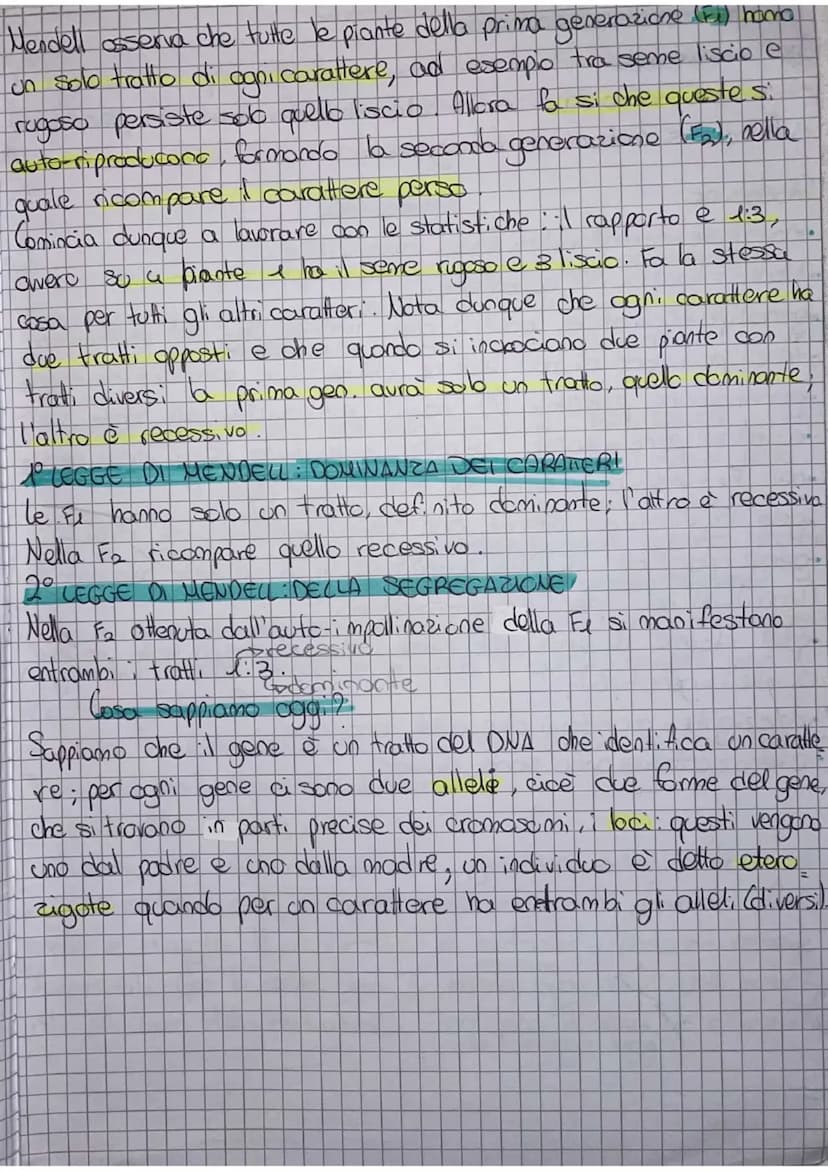 Mendell osserva che tutte le piante della prima generazione (F1) hanno
un solo tratto di ogni carattere, ad esempio tra seme liscio e
rugoso persiste solo quello liscio. Allora fa sì che queste si
auto-riproducono, formando la seconda generazione (F2), nella
quale ricompare il carattere perso.
Comincia dunque a lavorare con le statistiche: il rapporto è 1:3,
ovvero su 4 piante 1 ha il seme rugoso e 3 liscio. Fa la stessa
cosa per tutti gli altri caratteri. Nota dunque che ogni carattere ha
due tratti opposti e che quando si incrociano due piante con
tratti diversi la prima gen. avrà solo un tratto, quello dominante;
l'altro è recessivo.
1° LEGGE DI MENDELL: DOMINANZA DEI CARATTERI
Le F1 hanno solo un tratto, definito dominante; l'altro è recessivo
Nella F2 ricompare quello recessivo.
2° LEGGE DI MENDELL: DELLA SEGREGAZIONE
Nella F2 ottenuta dall'auto-impollinazione della F1 si manifestano
recessivo
entrambi i tratti 1:3.
dominante
Cosa sappiamo oggi?
Sappiamo che il gene è un tratto del DNA che identifica un caratte
re; per ogni gene ci sono due allele, cioè due forme del gene,
che si trovano in parti precise dei cromosomi, i loci: questi vengono
uno dal padre e uno dalla madre, un individuo è detto etero=
zigote quando per un carattere ha enetrambi gli alleli (diversi).